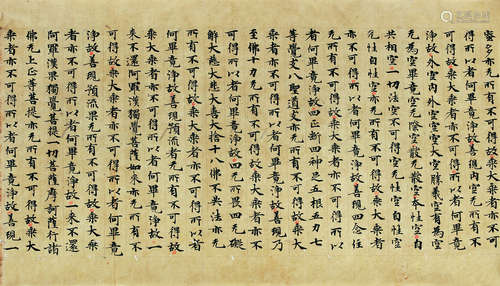 蜜多亦无所有不可得故乘大乘者亦不可
得所以者何畢竟淨故善現內空无所有不可
淨故外空內外空空空大空勝義空有為空
无為空畢竟空无際空散空本性空自
共相空一切法空不可得空无性空自性空
无性自性空亦无所有不可得故乘大乘者
亦不可得所以者何畢竟淨故善現四念住
无所有不可得故乘大乘者亦不可得所以
者何畢竟淨故四正斷四神足五根五力七
等覺支八聖道支亦无所有不可得故乘大乘
至佛十力无所有不可得故乘大乘者亦不
可得所以者何畢竟淨故四无所畏四无礙
解大慈大悲大喜大捨十八佛不共法亦无
所有不可得故乘大乘者亦不可得所以者
何畢竟淨故善現預流者无所有不可得故
乘大乘者亦不可得所以者何畢竟淨故一
來不還阿羅漢獨覺菩薩如來亦无所有不
可得故乘大乘者亦不可得所以者何畢竟
淨故善現預流果无所有不可得故乘大乘
者亦不可得所以者何畢竟淨故一來不還
阿羅漢果獨覺菩提一切菩薩摩訶薩行諸
佛无上正等菩提亦无所有不可得故乘大
乘者亦不可得所以者何畢竟淨故善現一